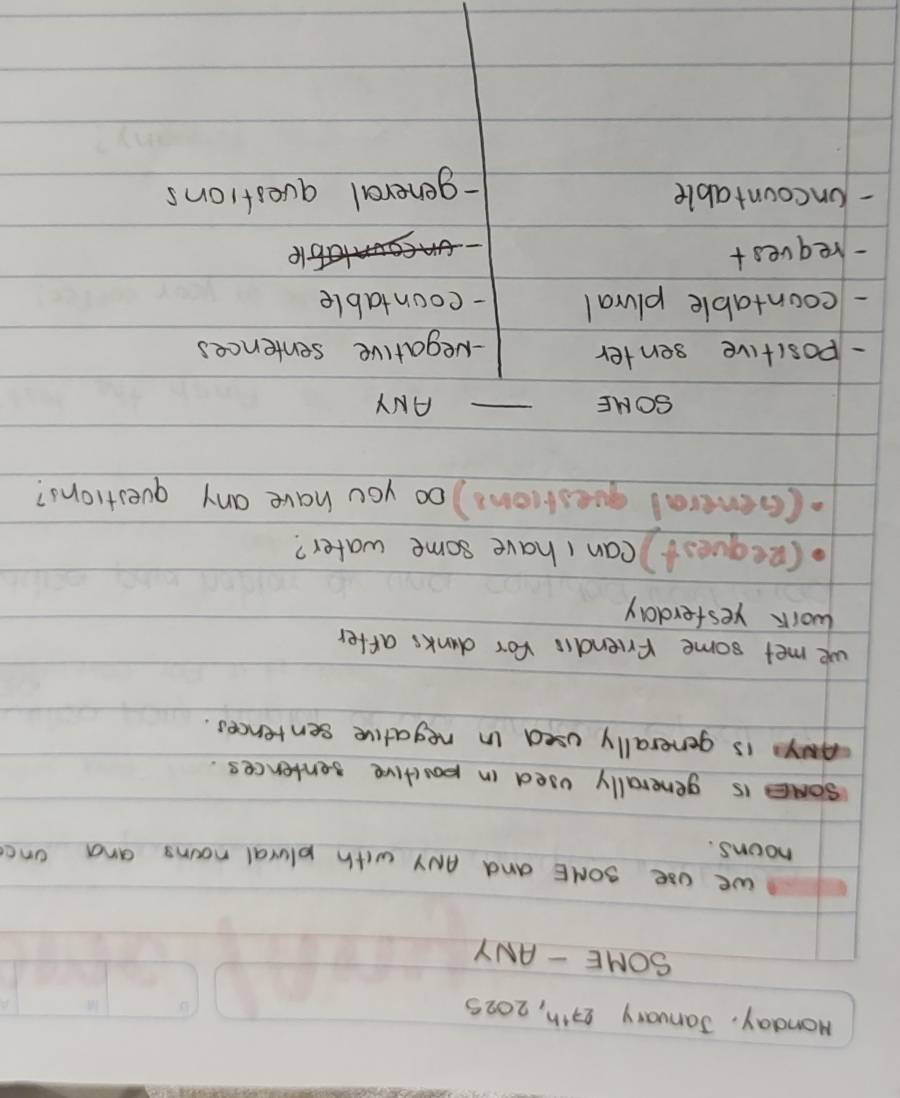 Monday, January 27th, 2025
SOME - ANY
we use SOME and ANY with plural nouns and unc
nouns.
SOME is generally used in positive sentences.
ANY is generally used in negative sentences.
we met some Friends for drinks after
work yesterday
• (Request) can i have some water?
• (General questions) Do you have any questions?
SOME — ANY
- positive senter - Negative sentences
- countable plural - countable
- request - uncountable
- uncountable - general questions